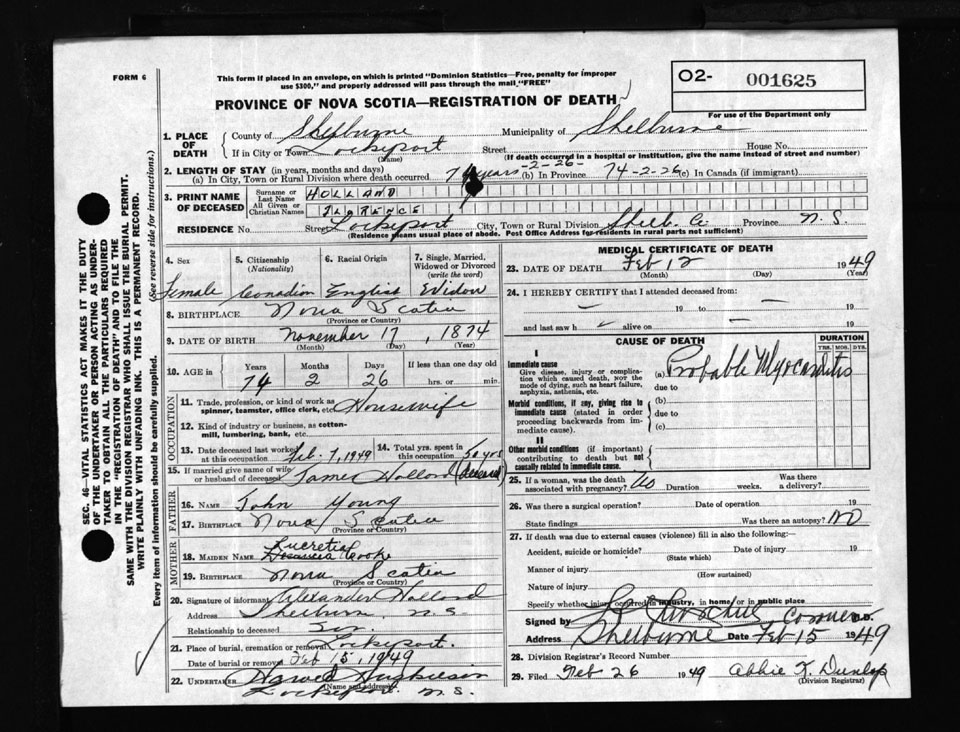 FORM 6
This form if placed in an envelope, on which is printed "Dominion Statistics—Free, penalty for improper
use $300," and properly addressed will pass through the mail "FREE"
O2- 001625
For use of the Department only
PROVINCE OF NOVA SCOTIA—REGISTRATION OF DEATH
1. PLACE OF DEATH
County of Shelburne Municipality of Shelburne
If in City or Town Lockeport Street House No.
(Name) (If death occurred in a hospital or institution, give the name instead of street and number)
2. LENGTH OF STAY (in years, months and days)
(a) In City, Town or Rural Division where death occurred 74 years -2-26- (b) In Province 74-2-26 (c) In Canada (if immigrant)
3. PRINT NAME OF DECEASED
Surname or Last Name HOLLAND
All Given or Christian Names FLORENCE
RESIDENCE No. Street Lockeport City, Town or Rural Division Shelb. Co. Province N.S.
(Residence means usual place of abode. Post Office Address for residents in rural parts not sufficient)
4. Sex
Female
5. Citizenship
(Nationality)
Canadian
6. Racial Origin
English
7. Single, Married,
Widowed or Divorced
(write the word)
Widow
8. BIRTHPLACE Nova Scotia
(Province or Country)
9. DATE OF BIRTH November 17, 1874
(Month) (Day) (Year)
10. AGE in Years Months Days If less than one day old
74 2 26 hrs. or min.
OCCUPATION
11. Trade, profession, or kind of work as
spinner, teamster, office clerk, etc. Housewife
12. Kind of industry or business, as cotton-
mill, lumbering, bank, etc.
13. Date deceased last worked
at this occupation Feb. 7, 1949
14. Total yrs. spent in
this occupation 50 yrs
15. If married give name of wife
or husband of deceased James Holland (deceased)
FATHER
16. NAME John Young
17. BIRTHPLACE Nova Scotia
(Province or Country)
MOTHER
Lucretia
18. MAIDEN NAME Cooke
19. BIRTHPLACE Nova Scotia
(Province or Country)
20. Signature of informant Alexander Holland
Address Shelburne N.S.
Relationship to deceased Son
21. Place of burial, cremation or removal Lockeport.
Date of burial or removal Feb 15, 1949
22. UNDERTAKER
(Name and address)
Lockeport N.S.
MEDICAL CERTIFICATE OF DEATH
23. DATE OF DEATH Feb 12 1949
(Month) (Day) (Year)
24. I HEREBY CERTIFY that I attended deceased from:
19 to 19
and last saw h alive on 19
CAUSE OF DEATH
DURATION
YRS. MOS. DYS.
I
Immediate cause
Give disease, injury or complica-
tion which caused death, NOT the
mode of dying, such as heart failure,
asphyxia, asthenia, etc.
(a) Probable Myocarditis
due to
Morbid conditions, if any, giving rise to
immediate cause (stated in order
proceeding backwards from im-
mediate cause).
(b)
due to
(c)
II
Other morbid conditions (if important)
contributing to death but not
causally related to immediate cause.
25. If a woman, was the death
associated with pregnancy? No Duration weeks. Was there
a delivery?
26. Was there a surgical operation? Date of operation 19
State findings Was there an autopsy? NO
27. If death was due to external causes (violence) fill in also the following:
Accident, suicide or homicide? Date of injury 19
(State which)
Manner of injury
(How sustained)
Nature of injury
Specify whether injury occurred in industry, in home or in public place
Signed by Coroner M.D.
Address Shelburne Date Feb 15 1949
28. Division Registrar's Record Number
29. Filed Feb 26 1949 Abbie K. Dunlop
(Division Registrar)
SEC. 46—VITAL STATISTICS ACT MAKES IT THE DUTY
OF THE UNDERTAKER OR PERSON ACTING AS UNDER-
TAKER TO OBTAIN ALL THE PARTICULARS REQUIRED
IN THE "REGISTRATION OF DEATH" AND TO FILE THE
SAME WITH THE DIVISION REGISTRAR WHO SHALL ISSUE THE BURIAL PERMIT.
WRITE PLAINLY WITH UNFADING INK. THIS IS A PERMANENT RECORD.
Every item of information should be carefully supplied. (See reverse side for instructions.)